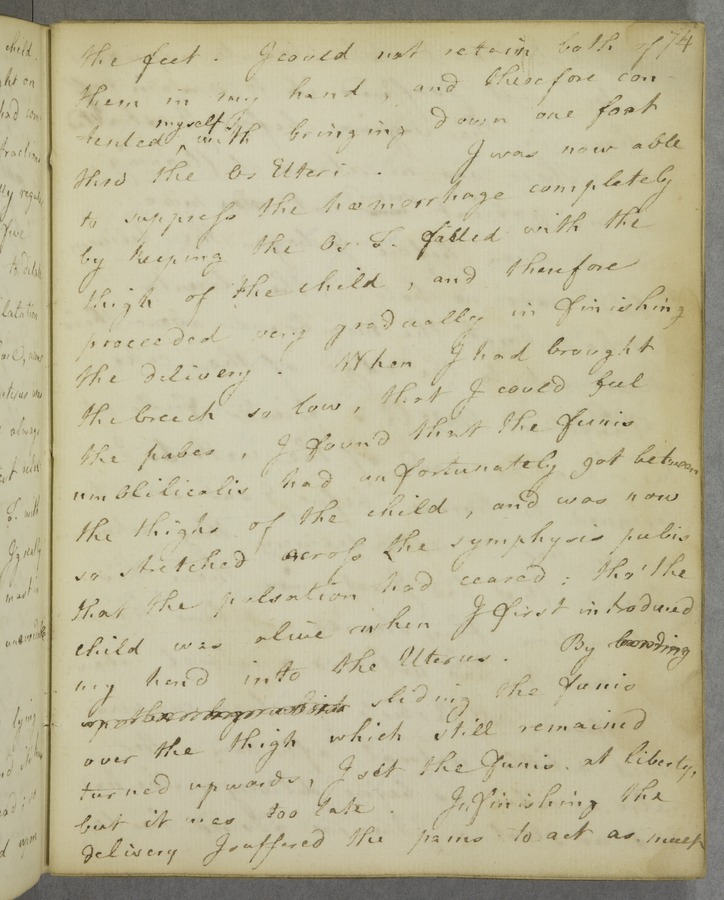 74
the feet. I could not retain both of
them in my hand, and therefore con-
tented myself with bringing down one foot
thro the Os Uteri. I was now able
to suppress the hæmorrhage completely
by keeping the Os U. filled with the
thigh of the child, and therefore
proceeded very gradually in finishing
the delivery. When I had brought
the breech so low, that I could feel
the pubes, I found that the funis
umbilicalis had unfortunately got between
the thighs of the child, and was now
so stretched across the symphysis pubis
that the pulsation had ceased: tho' the
child was alive when I first introduced
my hand into the Uterus. By bending
sliding the funis
over the thigh which still remained
turned upwards, I set the funis at liberty,
but it was too late. In finishing the
delivery I suffered the pains to act as much